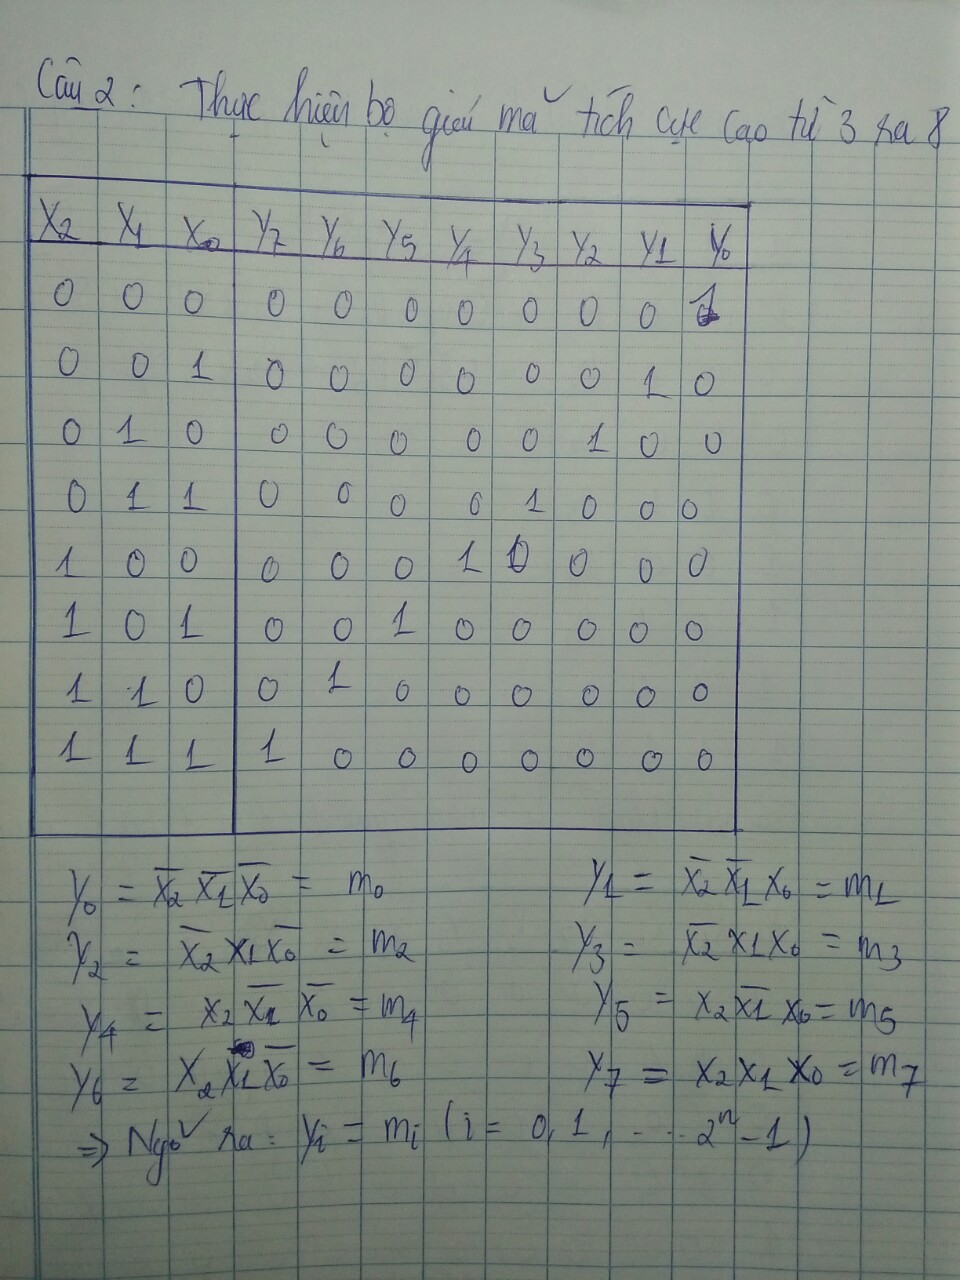 Câu 2: Thực hiện bộ giải mã tích cực cao từ 3 ra 8
X2 X1 X0 Y7 Y6 Y5 Y4 Y3 Y2 Y1 Y0
0 0 0 0 0 0 0 0 0 0 1
0 0 1 0 0 0 0 0 0 1 0
0 1 0 0 0 0 0 0 1 0 0
0 1 1 0 0 0 0 1 0 0 0
1 0 0 0 0 0 1 0 0 0 0
1 0 1 0 0 1 0 0 0 0 0
1 1 0 0 1 0 0 0 0 0 0
1 1 1 1 0 0 0 0 0 0 0
Y0 = X̅2 X̅1 X̅0 = m0 Y1 = X̅2 X̅1 X0 = m1
Y2 = X̅2 X1 X̅0 = m2 Y3 = X̅2 X1 X0 = m3
Y4 = X2 X̅1 X̅0 = m4 Y5 = X2 X̅1 X0 = m5
Y6 = X2 X1 X̅0 = m6 Y7 = X2 X1 X0 = m7
=> Ngõ ra: Yi = mi (i = 0, 1, ... 2ⁿ - 1)